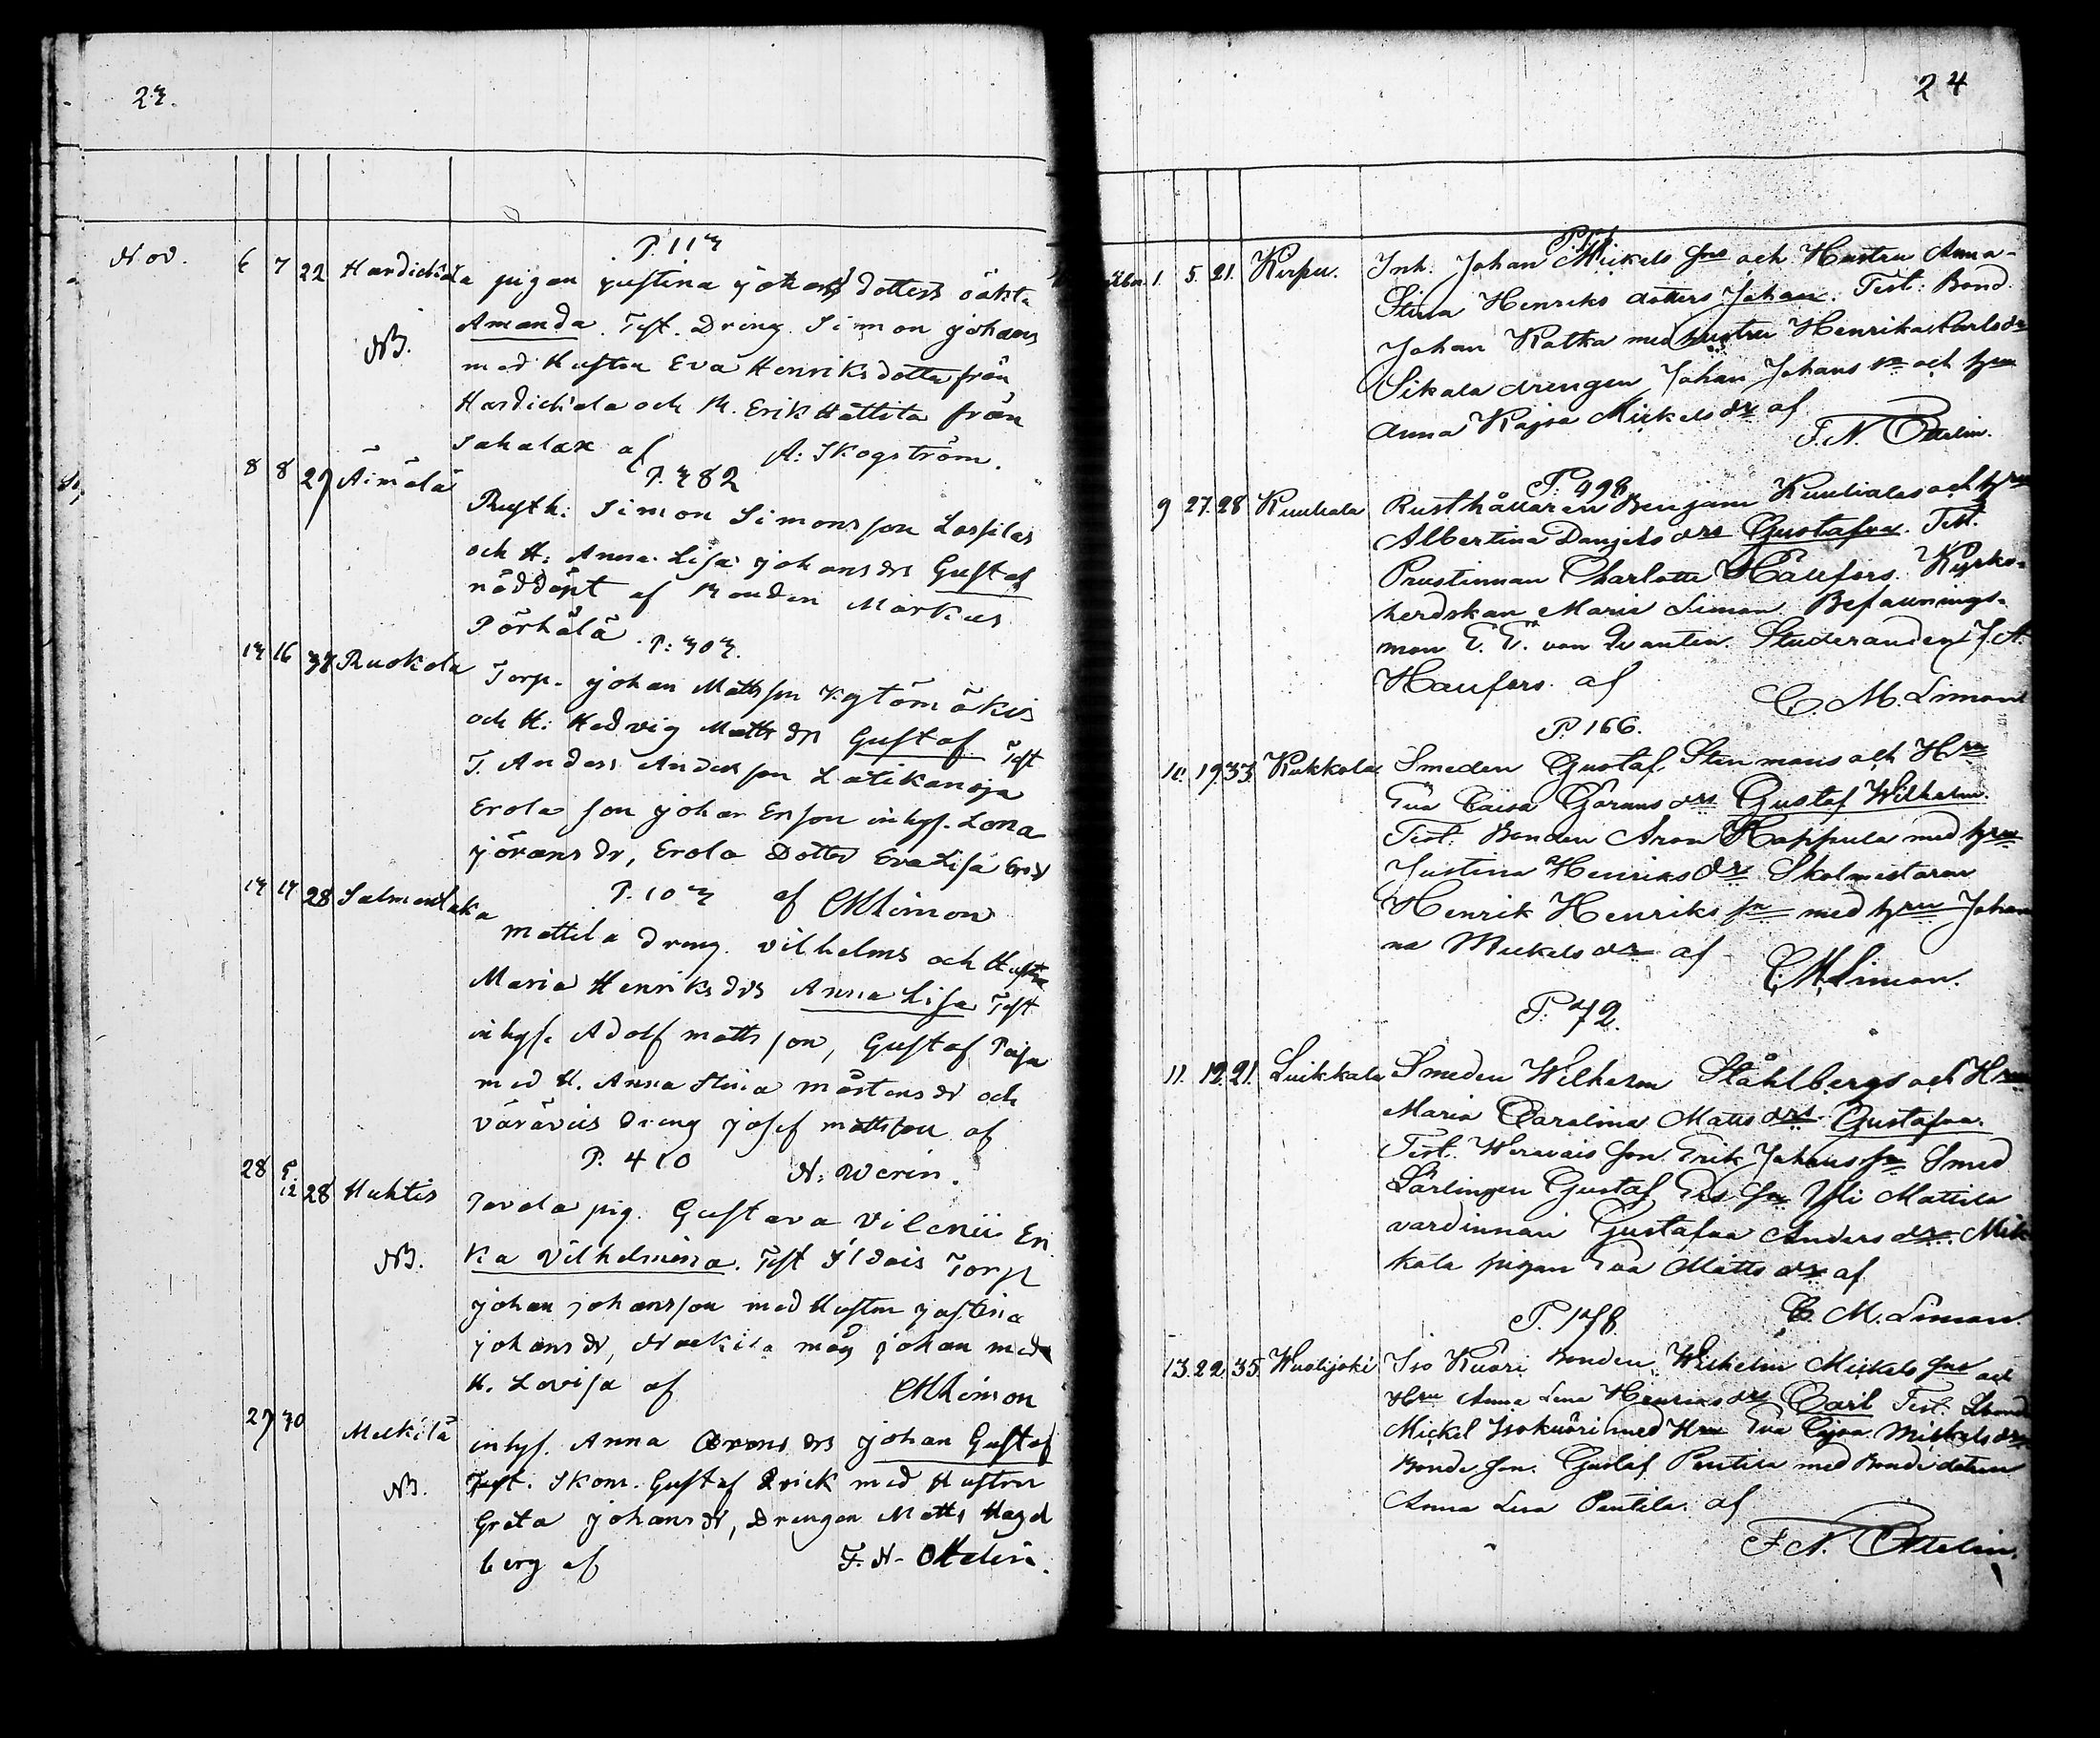 23.
Nov.
P. 113
6 7 22 Hardickala pigan justina johans dotters oäkta
Amanda. Test. Dreng. Simon johans
NB.
med Hustru Eva Henriksdotter från
Hardickala och B. Erik Hattita från
Sahalax af A: Skogström.
P. 382
8 8 29 Äimälä Rusth: Simon Simonsson Lassilas
och H: Anna Lisa johans drs Gustaf
nöddöpt af Bonden Markus
Pörhölä.
P: 303.
13 16 37 Ruokola Torp. johan Mattsson Kytömäkis
och H: Hedvig Matts drs Gustaf Test
T. Anders Andersson Latikanoja
Erola son johan Erson inhys. Lena
jörans dr, Erola Dotter Eva Lisa Ersd
P. 103 af CMLimon
13 17 28 Salmentaka Mattila dreng. vilhelms och Hustru
Maria Henriks drs Anna Lisa Test
inhys. Adolf mattsson, Gustaf Paja
med H. Anna Stina mårtens dr och
väräviis dreng josef mattsson af
P. 410 N: Werin.
28 5/12 28 Huhtis Tavela pig. Gustava Vilenii Eri
NB. ka Vilhelmina. Test Yldais Torp
johan johansson med Hustru justina
johans dr, Naekila måg johan med
H. Lovisa af CMLimon
29 30 Meckilä inhys. Anna Arons drs johan Gustaf
NB. Test. Skom. Gustaf Qvick med Hustru
Greta johans dr, Drengen Matts Hagel
berg af F. N. Ottelin.
24
1 5. 21. Kirpu. Inh. Johan Mickels sns och Hustru Anna-
Stina Henriks dotters Johan. Test: Bond.
Johan Ratka med hustru Henrika Carlsdr
Sikala drengen Johan Johans sn och hru
Anna Kajsa Mickels dr af
F. N. Ottelin.
P. 498.
9 27. 28 Kuuliala Rusthållaren Benjam Kuulialas och hru
Albertina Danjels drs Gustafva. Test.
Prustinnan Charlotte Häufors. Kyrko-
herdskan Marie Limon Befallnings-
man E. E. von Qvanten. Studeranden J. A.
Haufors. af C. M. Limon
P. 166.
10. 19. 33. Kukkola Smeden Gustaf Stenmans och Hru
Eva Caisa Görans drs Gustaf Wilhelm.
Test. Bonden Aron Kappula med hru
Justina Henriks dr Skolmestaren
Henrik Henriks sn med hru Johan
na Mickels dr af
C. M. Limon.
P. 72.
11. 12. 21. Luikkala Smeden Wilhelm Ståhlbergs och Hru
Maria Carolina Matts drs Gustafva.
Test. Werävais son Erik Johans sn Smed
Lärlingen Gustaf Ers sn Yli Mattila
värdinnan Gustafva Anders dr. Mik
kola pigan Eva Matts dr af
P. 178. C. M. Limon.
13. 22. 35. Wuolijoki Iso Kuäri Bonden Wilhelm Mickels sns och
Hru Anna Lena Henriks drs Carl Test. Bond
Mickel Isokuäri med Hru Eva Cajsa Mickels dr
Bonde son Gustaf Pentila med Bonde dottern
Anna Lisa Pentila. af
F. N. Ottelin.